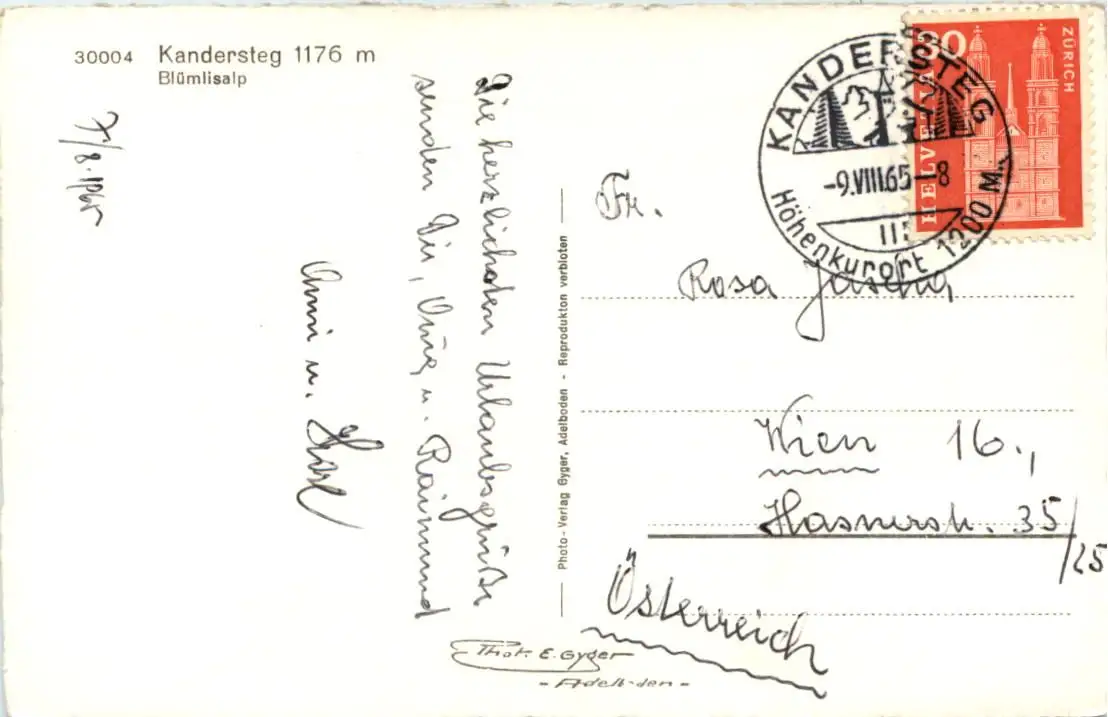 30004 Kandersteg 1176 m
Blümlisalp
8. 1965
Die herzlichsten Urlaubsgrüße
senden Dir, u. Raimund
Anni u. Karl
Photo-Verlag Gyger, Adelboden - Reproduktion verboten
KANDERSTEG
-9.VIII.65-8
Höhenkurort 1200 M.
HELVETIA
ZÜRICH
Fr.
Rosa
Wien 16.,
Hasnerstr. 35
/25
Österreich
Phot. E. Gyger
- Adelboden -